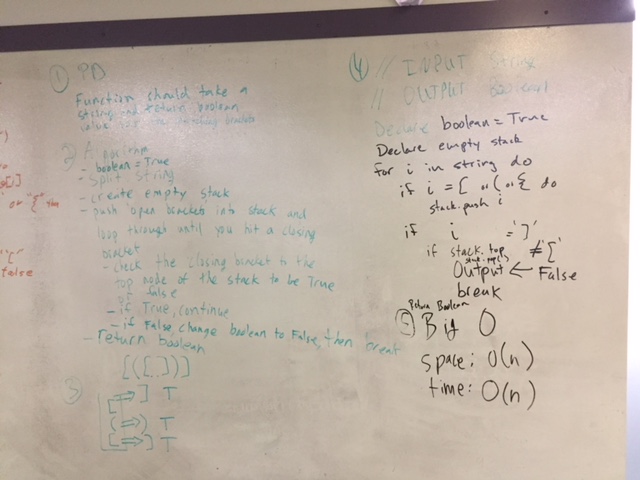 ① PD
Function should take a
string and return boolean
value for the matching brackets
2) Algorithm
- boolean = True
- Split string
- create empty stack
- push open brackets into stack and
loop through until you hit a closing
bracket
- check the closing bracket to the
top node of the stack to be True
or false
- if True, continue
- if False, change boolean to False, then break
- Return boolean
[([..])]
3)
[ => ] T
( => ) T
[ => ] T
④ // INPUT String
// OUTPUT Boolean
Declare boolean = True
Declare empty stack
for i in string do
if i = [ or ( or { do
stack.push i
if i = ']'
if stack.top ≠ '['
Output ← False
break
Return Boolean
⑤ Big O
space: O(n)
time: O(n)
or "{"
false